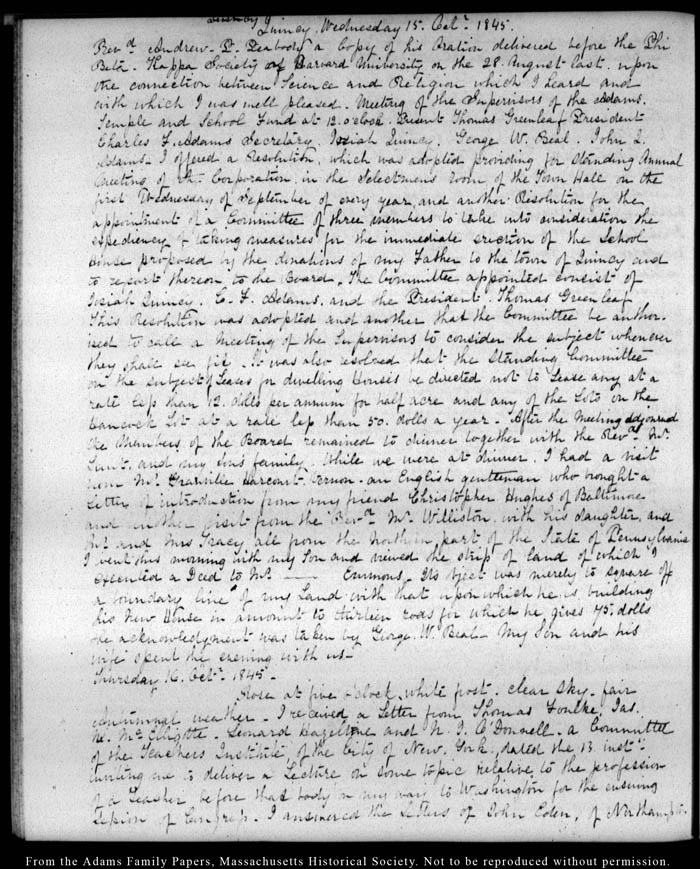 Quincy, Wednesday 15. Octr. 1845.
Revd. Andrew P. Peabody a Copy of his Oration delivered before the Phi
Beta Kappa Society of Harvard University on the 28. August last upon
the connection between Science and Religion which I heard and
with which I was well pleased. Meeting of the Supervisors of the Adams
Temple and School Fund at 12. o'clock. Present Thomas Greenleaf President
Charles F. Adams Secretary. Josiah Quincy. George W. Beal. John Q.
Adams. I offered a Resolution, which was adopted providing for Standing Annual
meeting of the Corporation, in the Selectmens room of the Town Hall on the
first Wednesday of September of every year, and another Resolution for the
appointment of a Committee of three members to take into consideration the
expediency of taking measures for the immediate erection of the School
House proposed by the donations of my Father to the town of Quincy and
to report thereon to the Board. The Committee appointed consist of
Josiah Quincy. C. F. Adams, and the President. Thomas Greenleaf
This Resolution was adopted and another that the Committee be author-
ised to call a Meeting of the Supervisors to consider the subject whenever
they shall see fit. It was also resolved that the Standing Committee
on the subject of Leases for dwelling Houses be directed not to Lease any at a
rate less than 12. dolls per annum for half acre and any of the Lots on the
Hancock Lot at a rate less than 50. dolls a year. After the Meeting adjourned
the Members of the Board remained to dinner together with the Revd. Mr.
Lunt, and my Sons family. While we were at dinner, I had a visit
from Mr. Granville Harcourt Vernon - an English gentleman who brought a
Letter of introduction from my friend Christopher Hughes of Baltimore
and another visit from the Revd. Mr. Williston, with his daughter, and
Mr. and Mrs Tracy all from the northern part of the State of Pennsylvania
I went this morning with my Son and viewed the strip of land of which I
executed a Deed to Mr. ——— Emmons. Its object was merely to square off
a boundary line of my Land with that upon which he is building
his New House in amount to thirteen rods for which he gives 75. dolls
the acknowledgment was taken by George W. Beal - My Son and his
wife spent the evening with us -
Thursday 16. Octr. 1845 -
Rose at five o'clock, white frost. clear sky - fair
Autumnal weather - I received a Letter from Thomas Foulke, Jas.
N. McElligotte - Leonard Hazeltine and N. J. O'Donnell - a Committee
of the Teachers Institute of the City of New York, dated the 13. inst.
inviting me to deliver a Lecture on some topic relative to the profession
of a Teacher before that body on my way to Washington for the ensuing
Session of Congress. I answered the Letters of John Eden, of Northampton
From the Adams Family Papers, Massachusetts Historical Society. Not to be reproduced without permission.